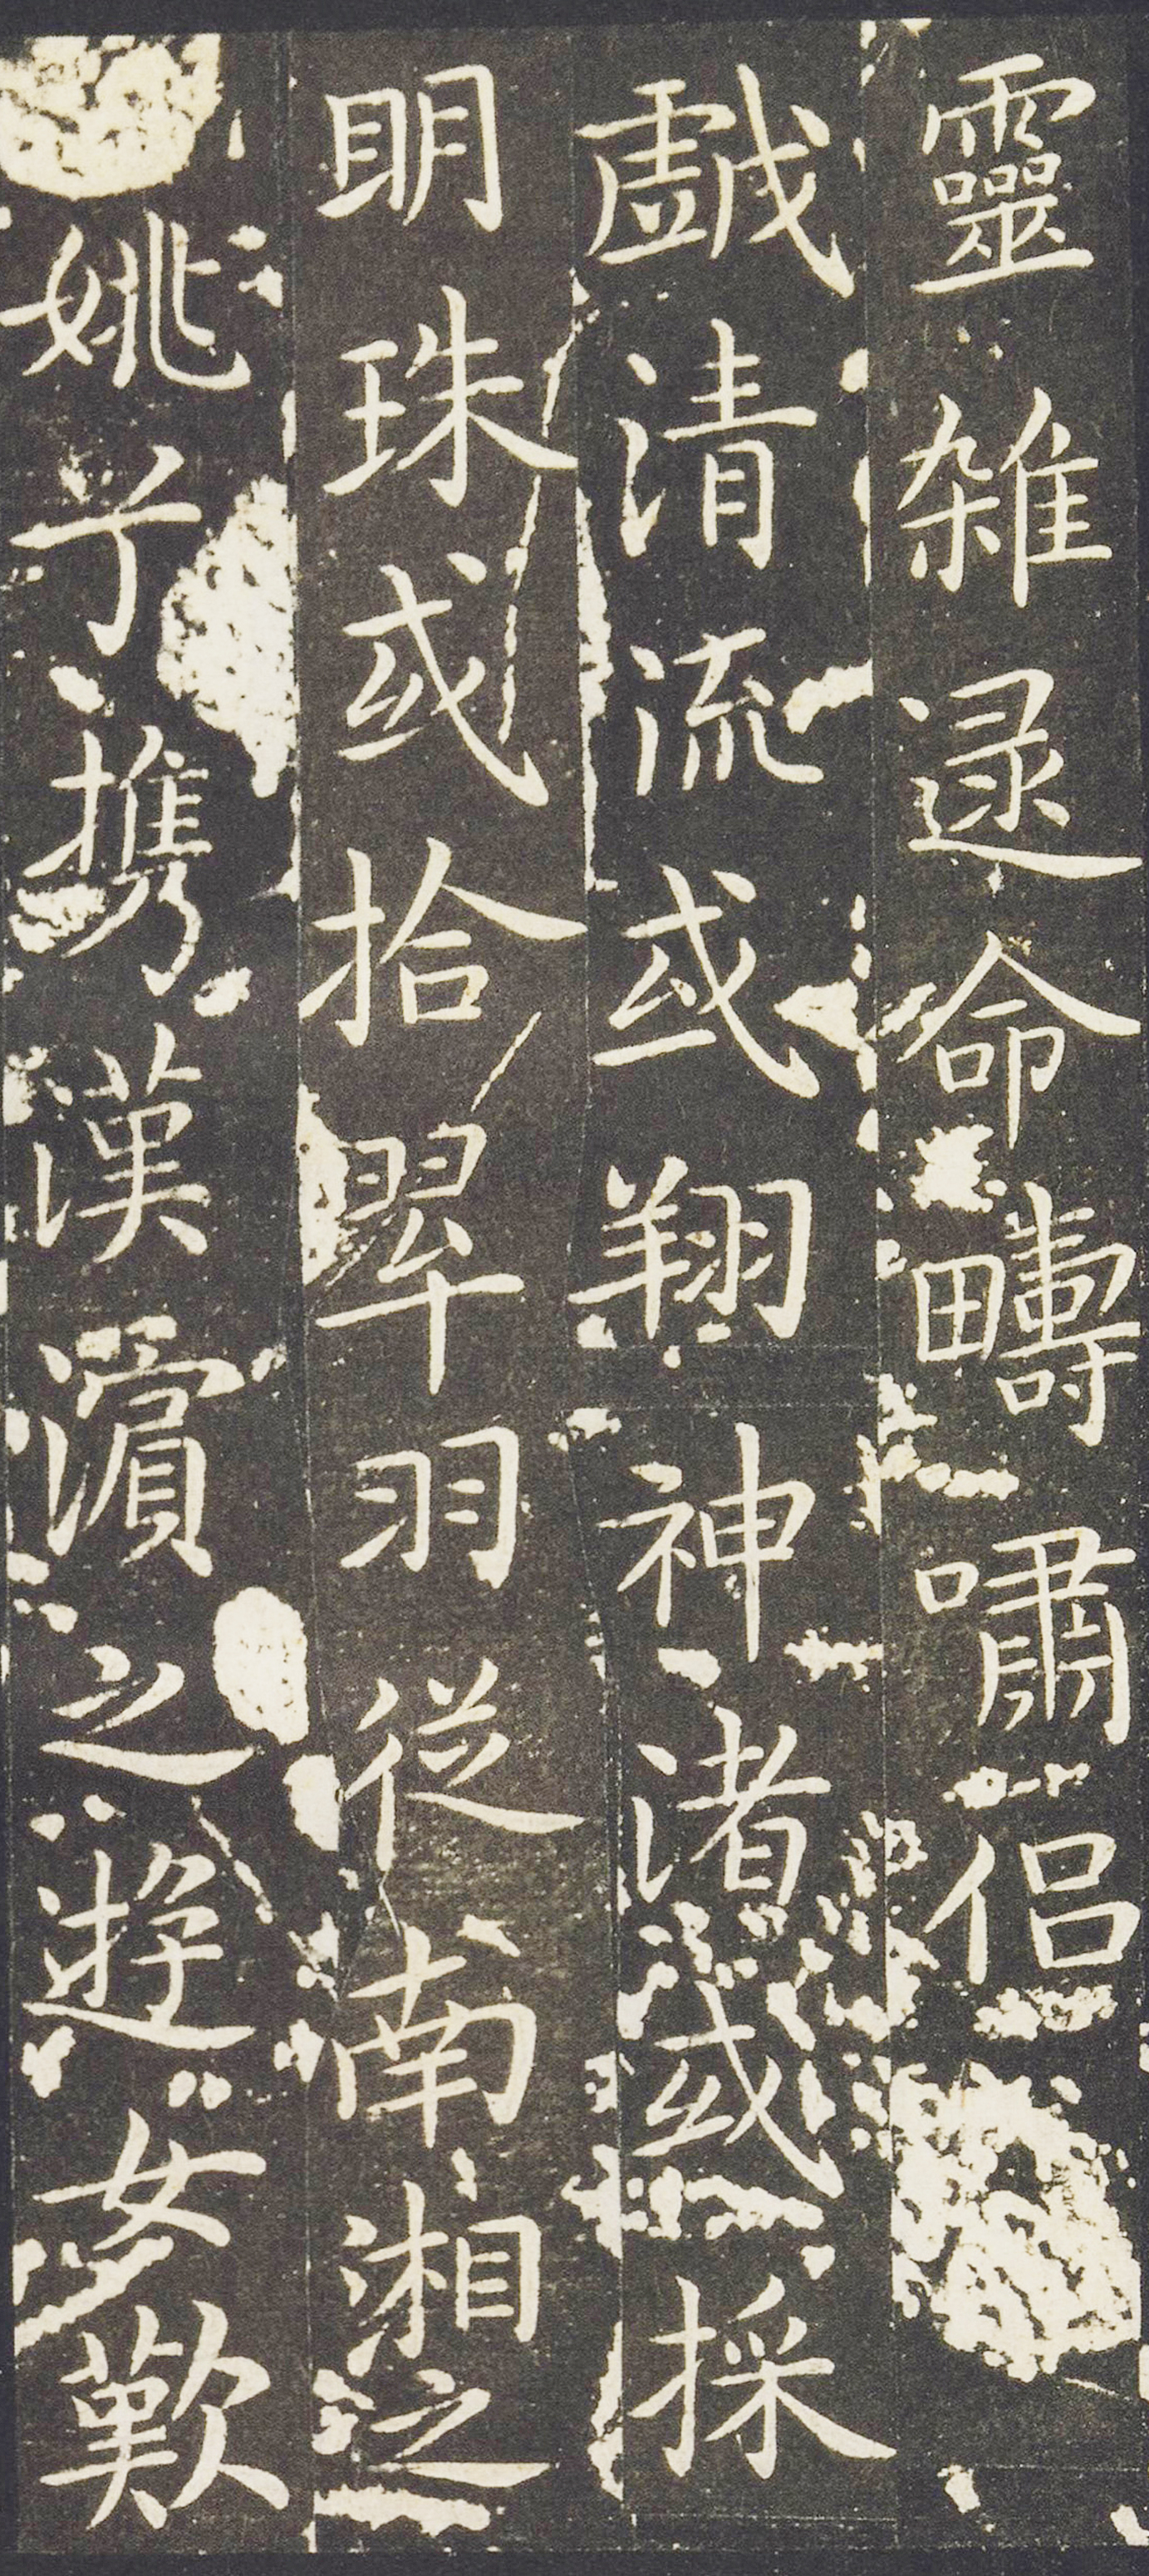 靈雜逯命疇嘯侶
戲清流或翔神渚或採
明珠或拾翠羽從南湘之
姚兮携漢濱之遊女歎